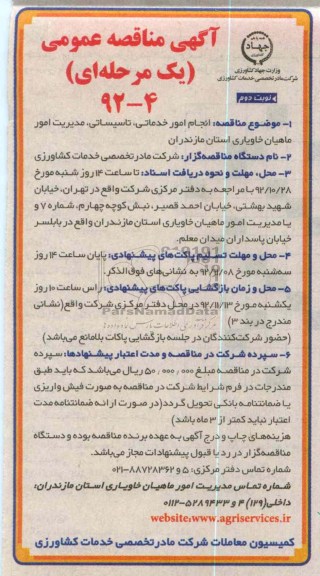 آگهی مناقصه عمومی
(یک مرحله‌ای)
۹۲-۴
جهاد
وزارت جهاد کشاورزی
شرکت مادر تخصصی خدمات کشاورزی
نوبت دوم
۱- موضوع مناقصه: انجام امور خدماتی، تاسیساتی، مدیریت امور
ماهیان خاویاری استان مازندران
۲- نام دستگاه مناقصه‌گزار: شرکت مادر تخصصی خدمات کشاورزی
۳- محل، مهلت و نحوه دریافت اسناد: تا ساعت ۱۴ روز شنبه مورخ
۹۲/۱۰/۲۸ با مراجعه به دفتر مرکزی شرکت واقع در تهران، خیابان
شهید بهشتی، خیابان احمد قصیر، نبش کوچه چهارم، شماره ۷ و
یا مدیریت امور ماهیان خاویاری استان مازندران واقع در بابلسر
خیابان پاسداران میدان معلم.
۴- محل و مهلت تسلیم پاکت‌های پیشنهادی: پایان ساعت ۱۴ روز
سه‌شنبه مورخ به نشانی‌های فوق‌الذکر.
۵- محل و زمان بازگشایی پاکت‌های پیشنهادی: راس ساعت ۱۰ روز
یکشنبه مورخ ۹۲/۱۱/۱۳ در محل دفتر مرکزی شرکت واقع (نشانی
مندرج در بند ۳)
(حضور شرکت‌کنندگان در جلسه بازگشایی پاکات بلامانع می‌باشد)
۶- سپرده شرکت در مناقصه و مدت اعتبار پیشنهادها: سپرده
شرکت در مناقصه مبلغ ۵۰،۰۰۰،۰۰۰ ریال می‌باشد که باید طبق
مندرجات در فرم شرایط شرکت در مناقصه به صورت فیش واریزی
یا ضمانتنامه بانکی تحویل گردد (در صورت ارائه ضمانتنامه مدت
اعتبار نباید کمتر از ۳ ماه باشد)
هزینه‌های چاپ و درج آگهی به عهده برنده مناقصه بوده و دستگاه
مناقصه‌گزار در رد یا قبول پیشنهادات مجاز می‌باشد.
شماره تماس دفتر مرکزی: ۵ و ۸۸۷۲۸۳۶۲-۰۲۱
شماره تماس مدیریت امور ماهیان خاویاری استان مازندران:
داخلی (۱۲۹) ۴ و ۵۲۸۹۴۳۳-۰۱۱۲
website:www.agriservices.ir
کمیسیون معاملات شرکت مادر تخصصی خدمات کشاورزی
ParsNamadData